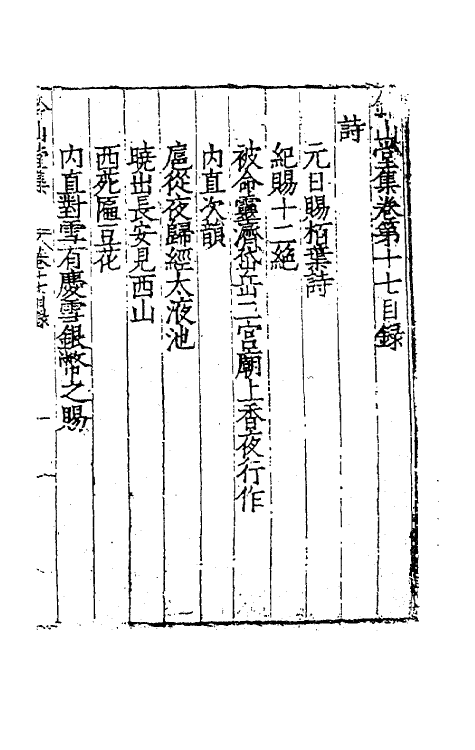 山堂集卷第十七目録
詩
元日賜栢葉詩
紀賜十二絶
被命靈濟岱岳二宮廟上香夜行作
内直次韻
扈從夜歸經太液池
曉出長安見西山
西苑匾豆花
内直對雪有慶雪銀幣之賜
山堂集 卷十七目録